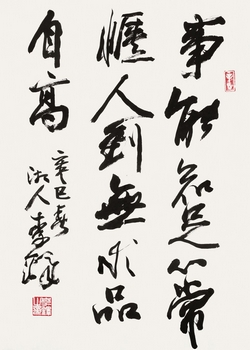 事能知足心常
愜人到無求品
自高
辛巳春
湘人李鐸